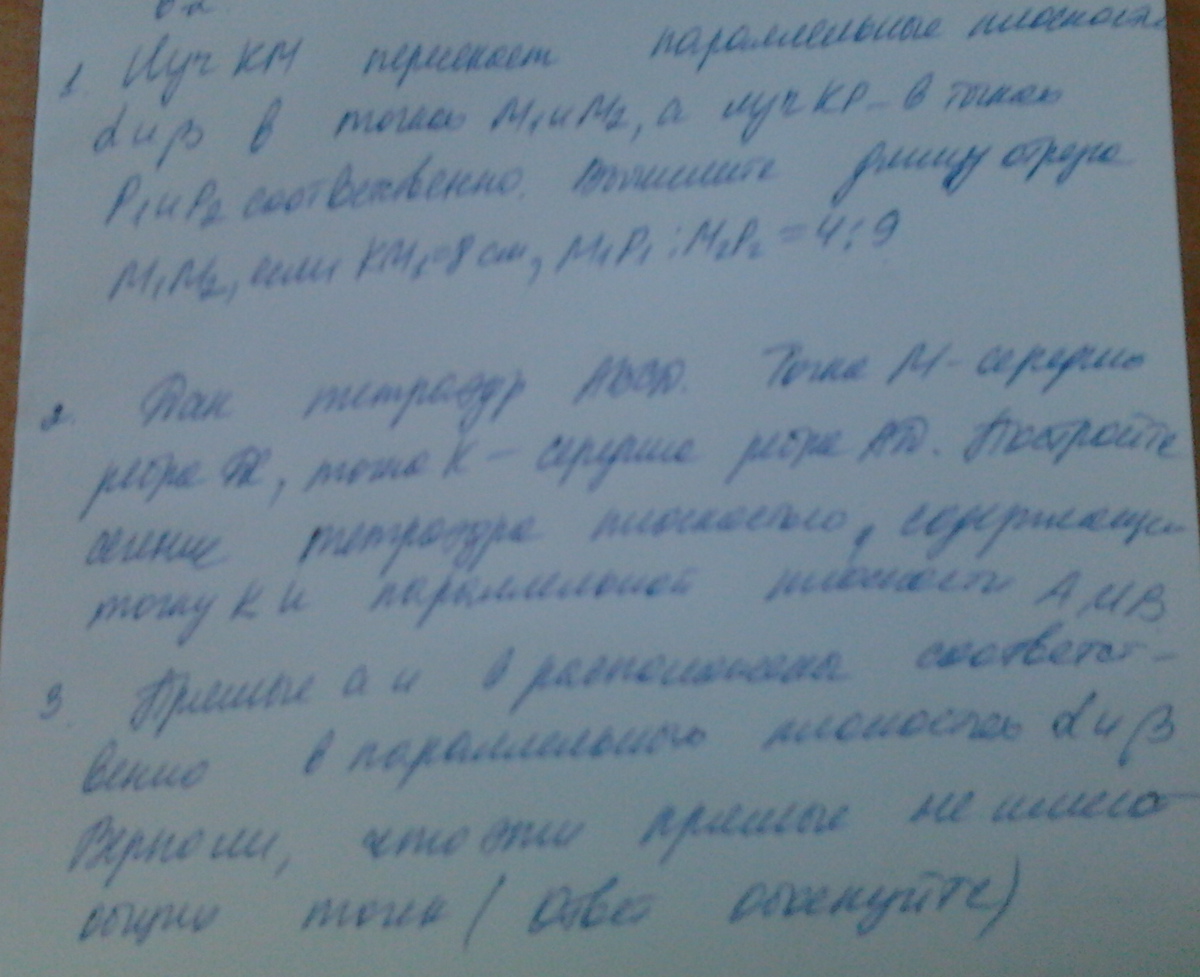 1. Луч КМ пересекает параллельные плоскости
α и β в точках M₁ и M₂, а луч КР - в точках
P₁ и P₂ соответственно. Вычислите длину отрезка
M₁M₂, если KM₁=8 см, M₁P₁:M₂P₂=4:9
2. Дан тетраэдр АВСD. Точка М - середина
ребра , точка К - середина ребра АD. Постройте
сечение тетраэдра плоскостью, содержащей
точку К и параллельной плоскости АМВ
3. Прямые а и в расположены соответст-
венно в параллельных плоскостях α и β
Верно ли, что эти прямые не имеют
общих точек (ответ обоснуйте)